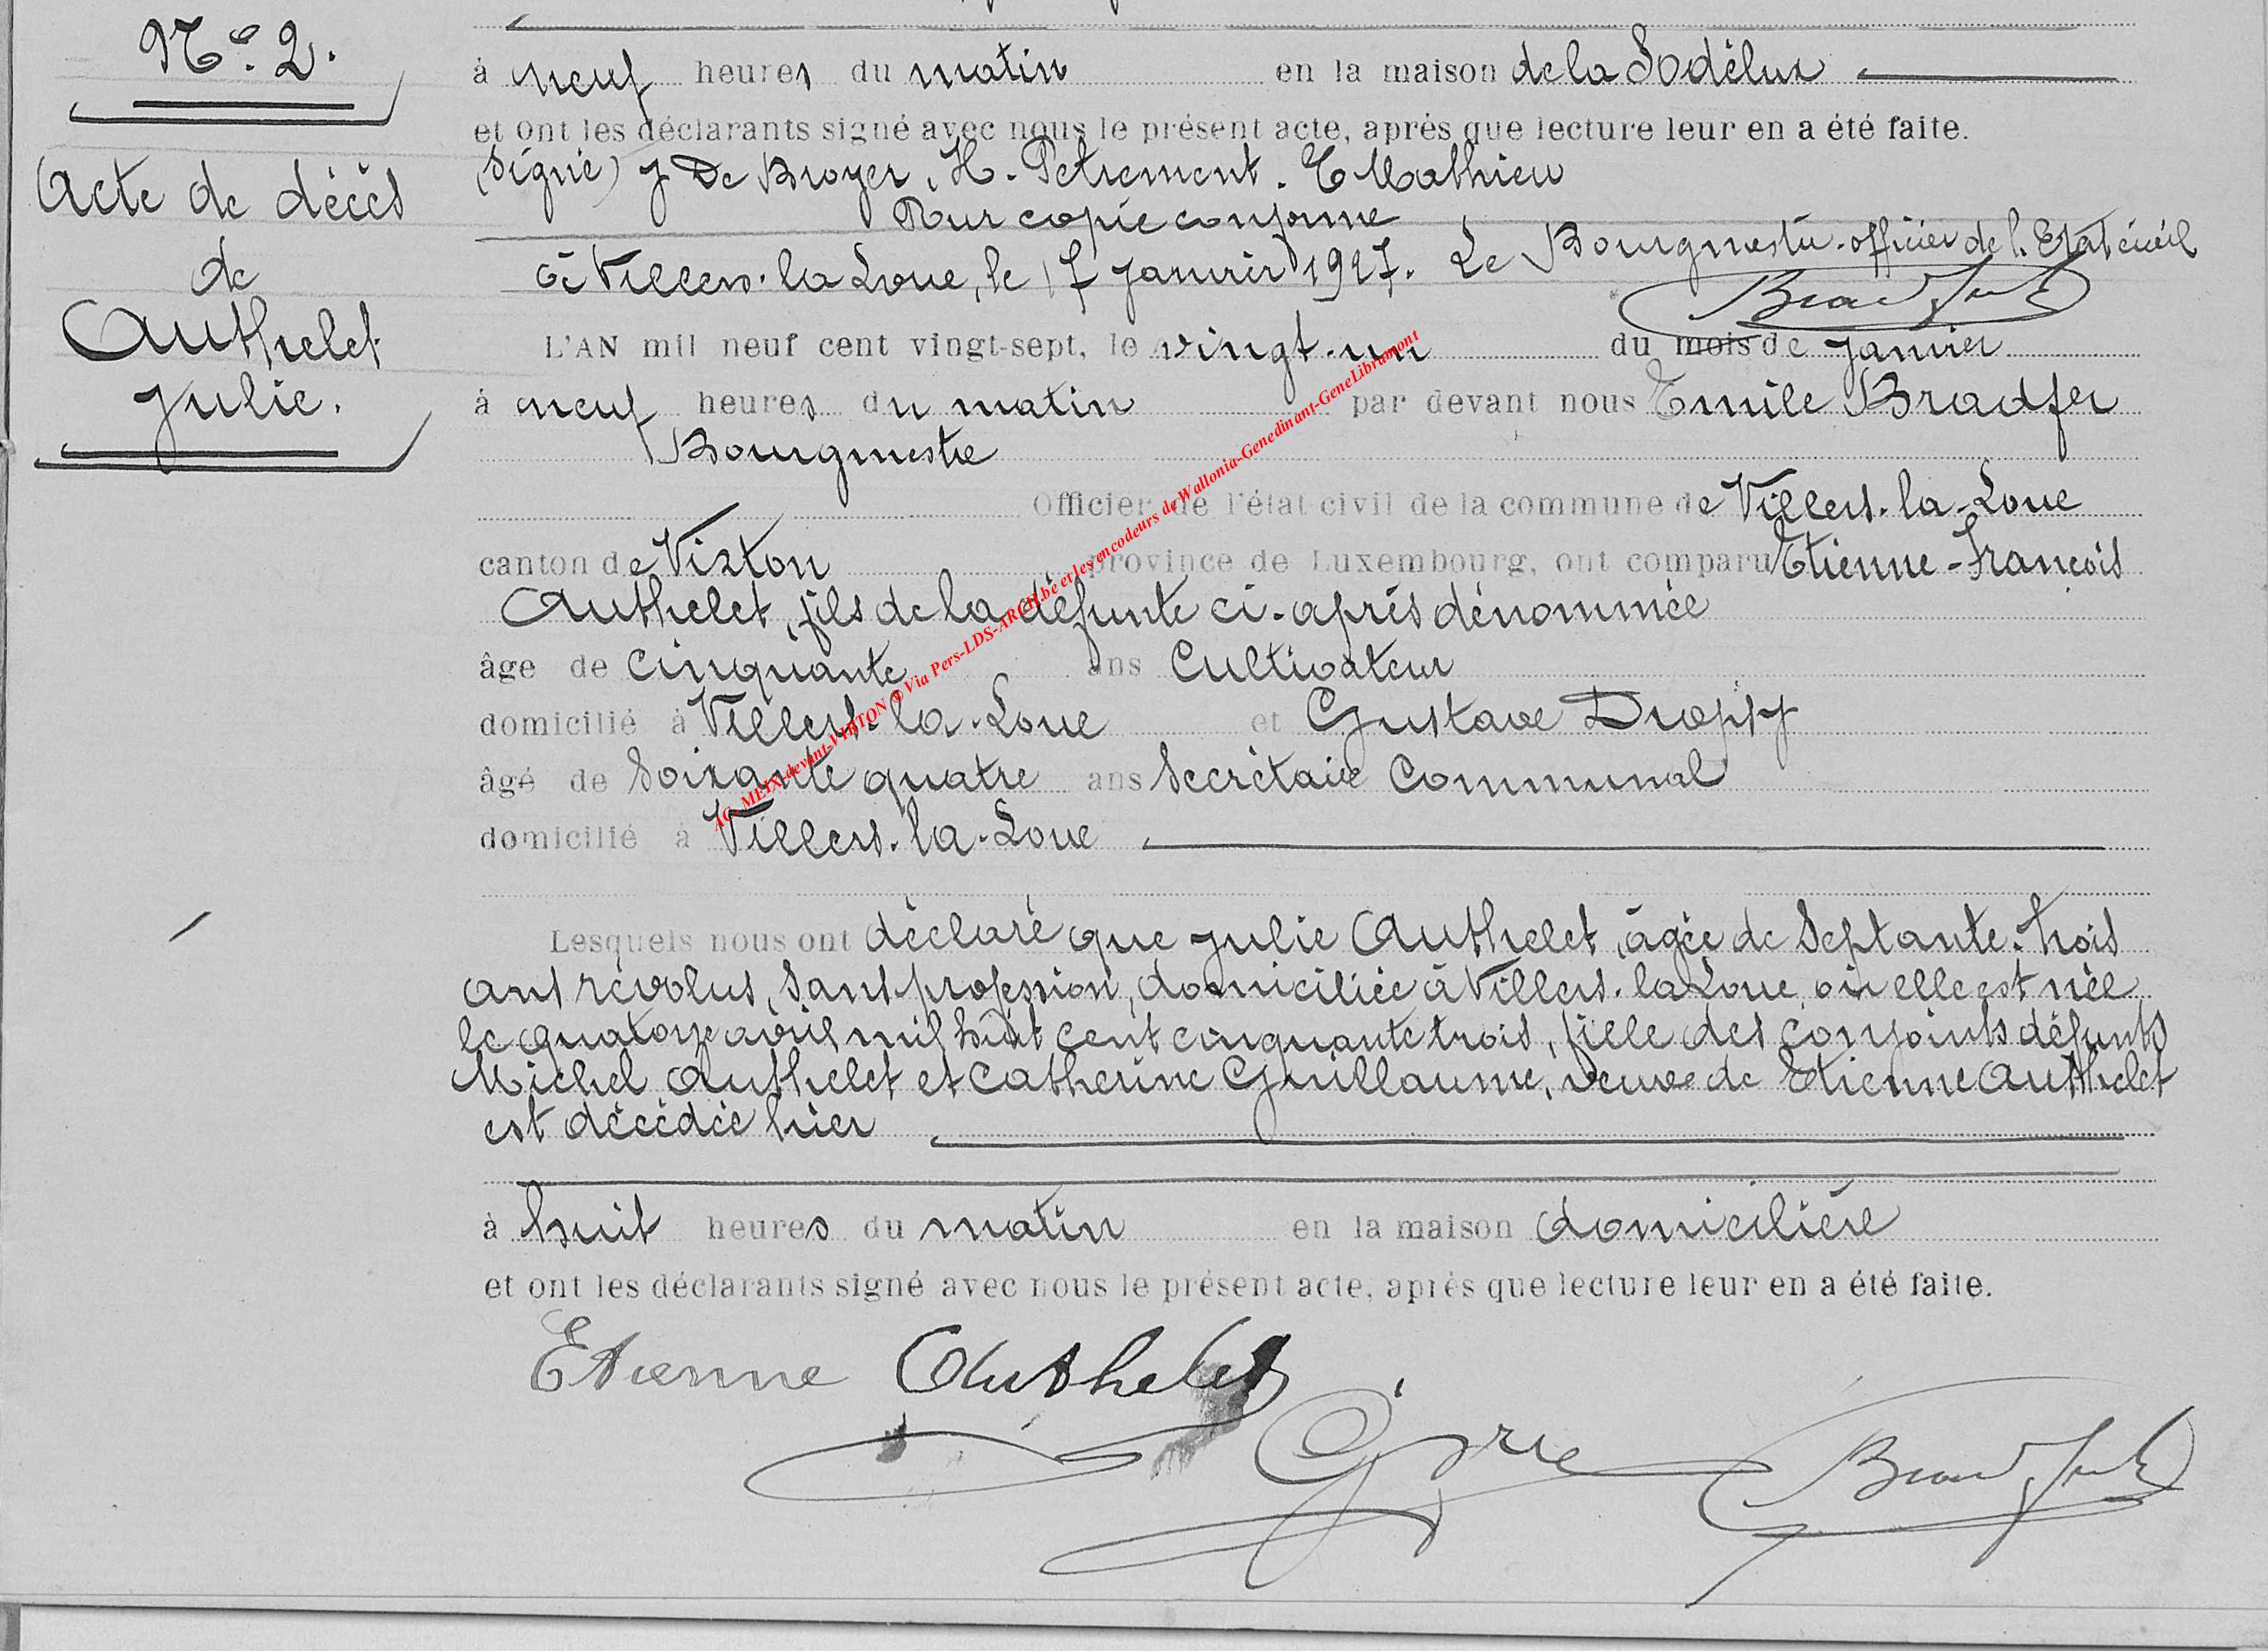 N° 2.
Acte de décès
de
Authelet
Julie.
à neuf heures du matin en la maison de la Sodélux
et ont les déclarants signé avec nous le présent acte, après que lecture leur en a été faite.
(Signé) J De Broyer, H. Petrement. E Mathieu
Pour copie conforme
à Villers-la-Loue, le 17 janvier 1927. Le Bourgmestre-officier de l'Etat civil
L'AN mil neuf cent vingt-sept, le vingt-un du mois de janvier
à neuf heures du matin par devant nous Emile Bradfer
Bourgmestre
Officier de l'état civil de la commune de Villers-la-Loue
canton de Virton province de Luxembourg, ont comparu Etienne-François
Authelet, fils de la défunte ci-après dénommée
âge de cinquante ans Cultivateur
domicilié à Villers-la-Loue et Gustave Dropsy
âgé de Soixante quatre ans Secrétaire Communal
domicilié à Villers-la-Loue
Lesquels nous ont déclaré que Julie Authelet, âgée de Septante-trois
ans révolus, sans profession, domiciliée à Villers-la Loue, où elle est née
le quatorze avril mil huit cent cinquante trois, fille des conjoints défunts
Michel Authelet et Catherine Guillaume, veuve de Etienne Authelet
est décédée hier
à huit heures du matin en la maison domiciliére
et ont les déclarants signé avec nous le présent acte, après que lecture leur en a été faite.
Etienne Authelet
AC MEIX-devant-VIRTON © Via Pers-LDS-ARCH.be et les encodeurs de Wallonia-Genedinant-GeneLibramont